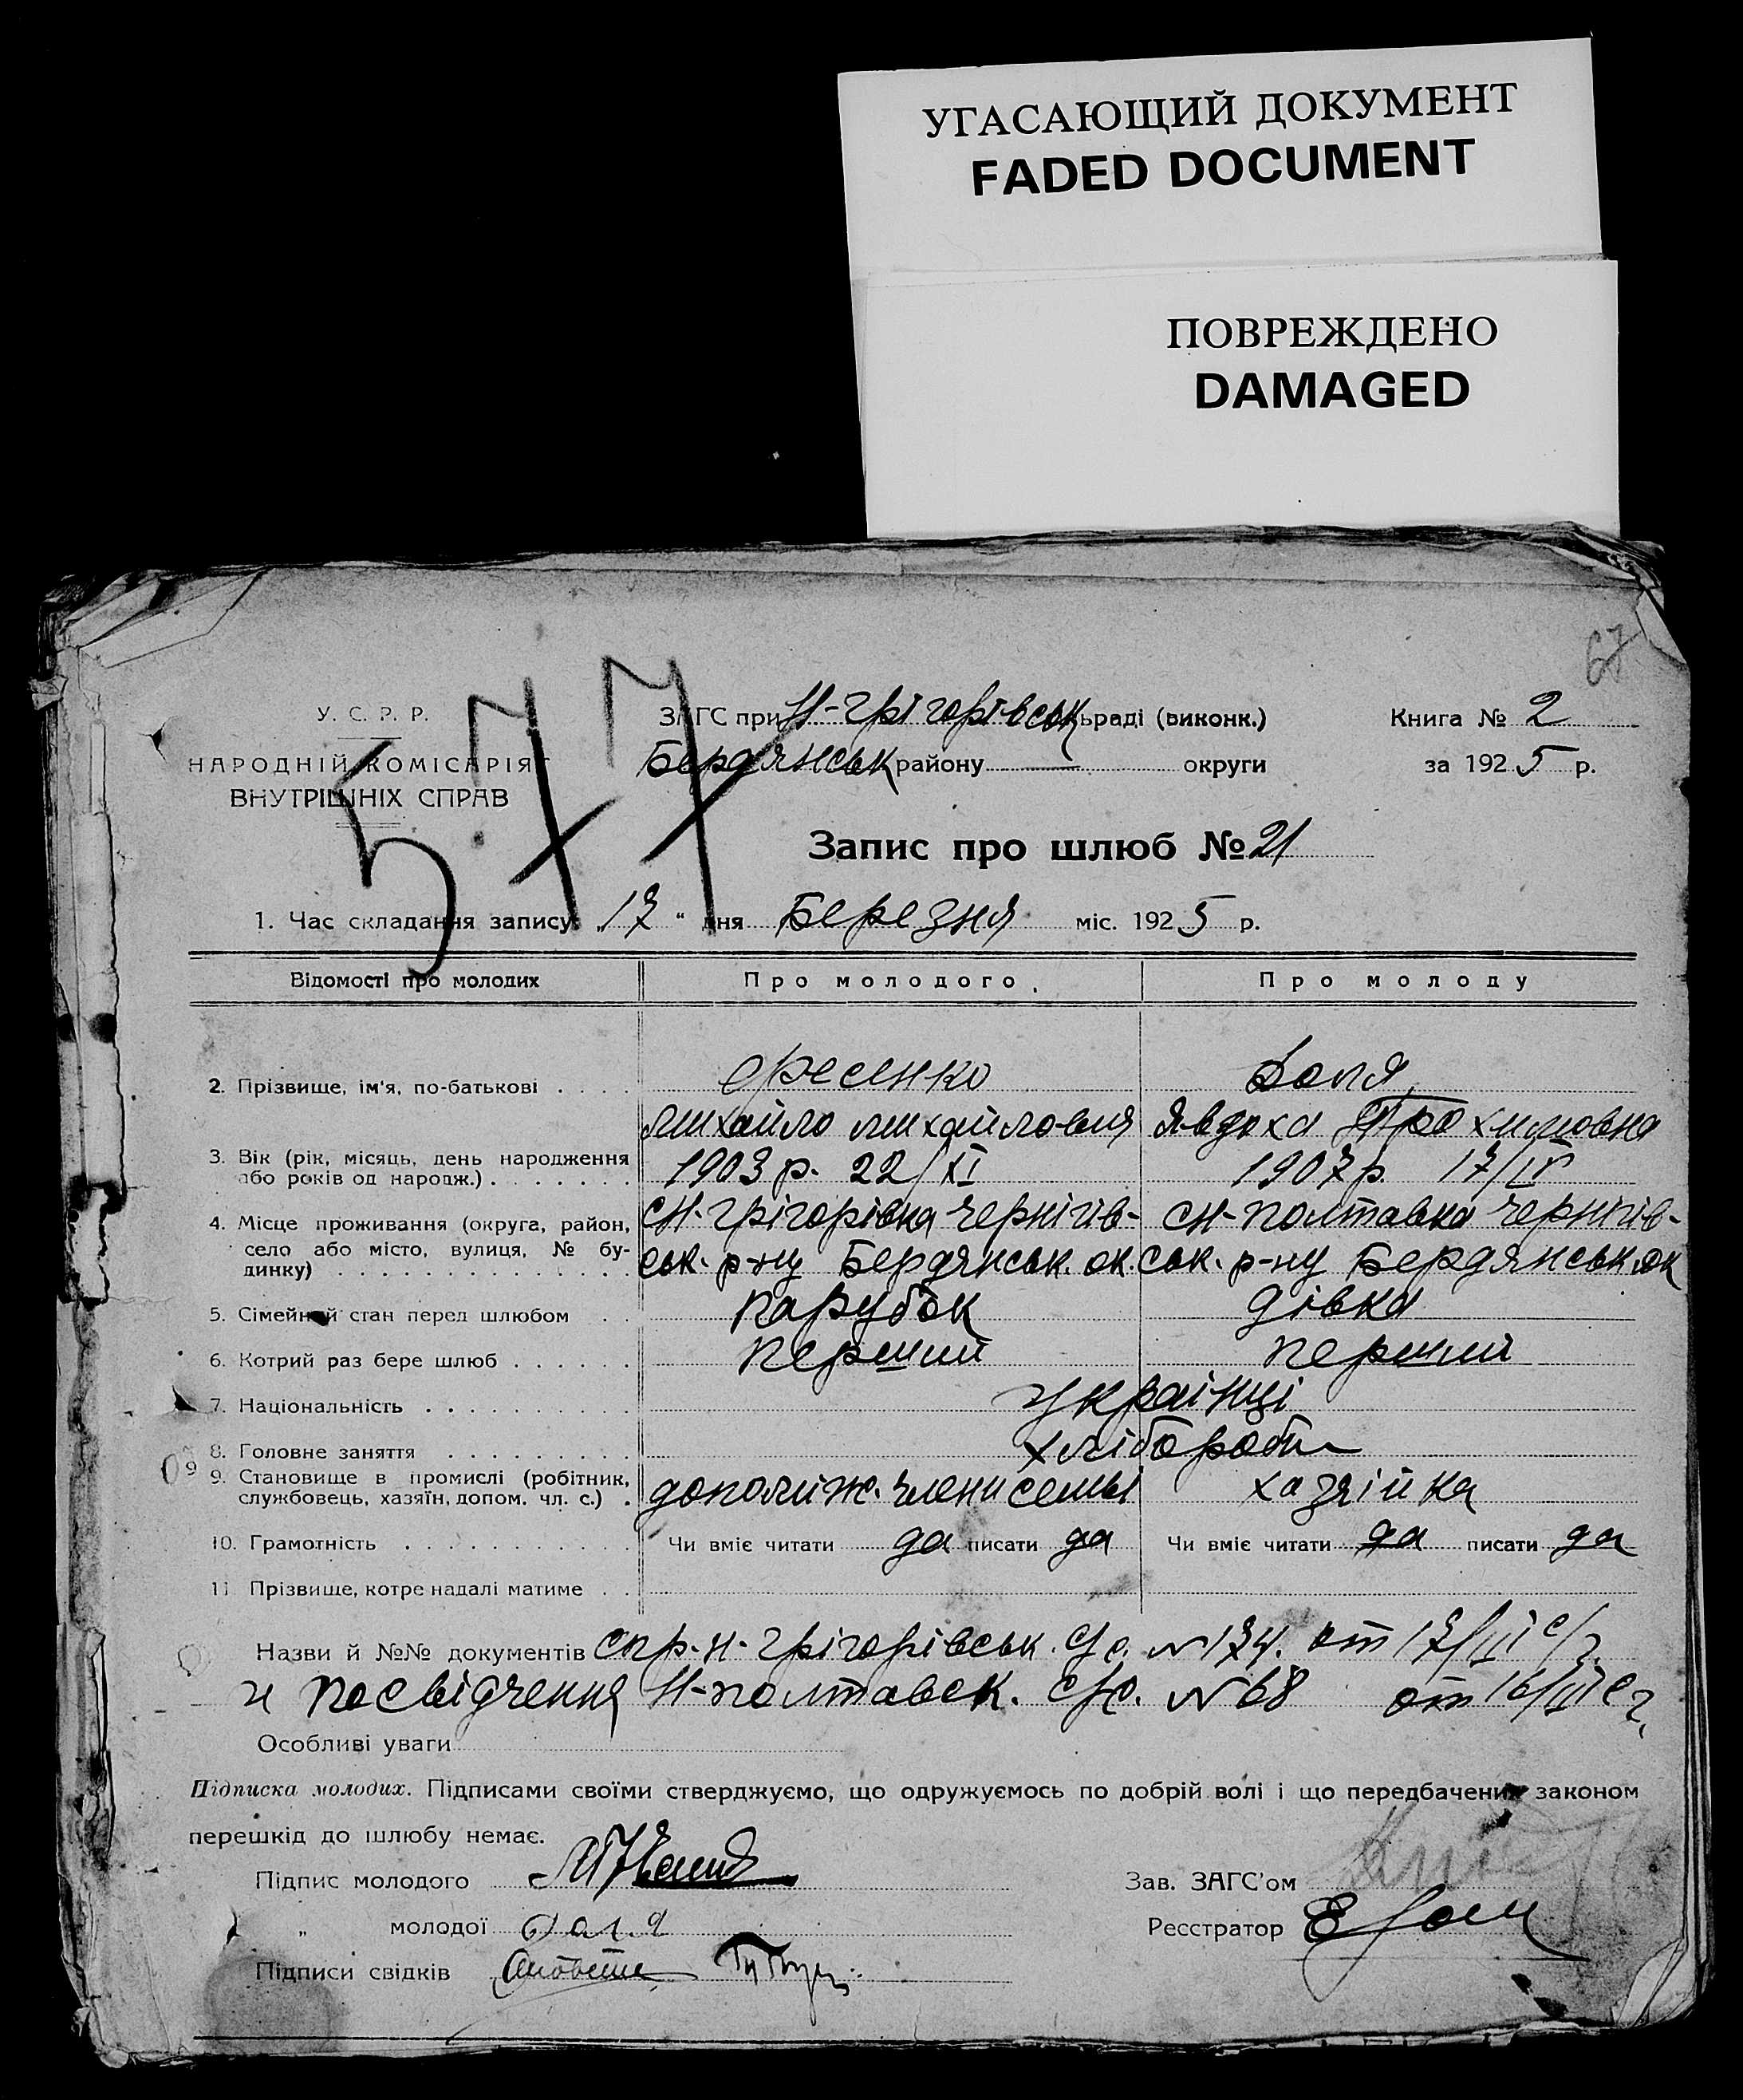 УГАСАЮЩИЙ ДОКУМЕНТ
FADED DOCUMENT
ПОВРЕЖДЕНО
DAMAGED
67
577
У. С. Р. Р.
НАРОДНІЙ КОМІСАРІЯТ
ВНУТРІШНІХ СПРАВ
ЗАГС при Н-Грігорівськ раді (виконк.)
Бердянськ району округи
Книга № 2
за 1925 р.
Запис про шлюб № 21
1. Час складання запису „17“ дня Березня міс. 1925 р.
Відомості про молодих Про молодого Про молоду
2. Прізвище, ім'я, по-батькові Фесенко Доля
Михайло Михайловия Явдоха Трохимовна
3. Вік (рік, місяць, день народження 1903 р. 22/XI 1907 р. 17/IV
або років од народж.)
4. Місце проживання (округа, район, сН-Грігорівка Чернігів- сН-Полтавка Чернігів-
село або місто, вулиця, № бу- ськ. р-ну Бердянськ. ок. ськ. р-ну Бердянськ. ок
динку)
5. Сімейний стан перед шлюбом парубок дівка
6. Котрий раз бере шлюб перший перший
7. Національність Українці
8. Головне заняття хліборобы
9. Становище в промислі (робітник, допоміж. члени семьі хазяійка
службовець, хазяїн, допом. чл. с.)
10. Грамотність Чи вміє читати да писати да Чи вміє читати да писати да
11 Прізвище, котре надалі матиме
Назви й №№ документів Спр. Н-Грігорівськ. с/с. №174. от 17/III с/г.
и посвідчення Н-Полтавск. с/с. №68 от 16/III с г.
Особливі уваги
Підписка молодих. Підписами своїми стверджуємо, що одружуємось по добрій волі і що передбачених законом
перешкід до шлюбу немає.
Підпис молодого
„ молодої Доля
Підписи свідків
Зав. ЗАГС'ом
Реєстратор